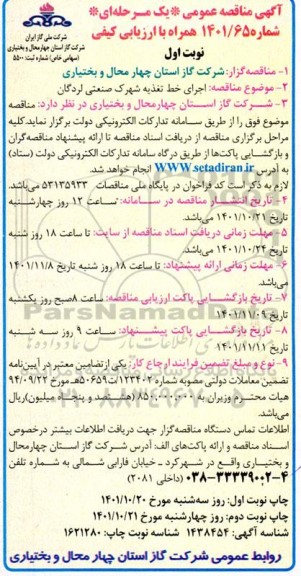 آگهی مناقصه عمومی *یک مرحله‌ای*
شماره ۱۴۰۱/۶۵ همراه با ارزیابی کیفی
نوبت اول
شرکت ملی گاز ایران
شرکت گاز استان چهارمحال و بختیاری
(سهامی خاص) شماره ثبت: ۵۵۰۰
۱- مناقصه‌گزار: شرکت گاز استان چهار محال و بختیاری
۲- موضوع مناقصه: اجرای خط تغذیه شهرک صنعتی لردگان
۳- شرکت گاز استان چهارمحال و بختیاری در نظر دارد: مناقصه
موضوع فوق را از طریق سامانه تدارکات الکترونیکی دولت برگزار نماید. کلیه
مراحل برگزاری مناقصه از دریافت اسناد مناقصه تا ارائه پیشنهاد مناقصه‌گران
و بازگشایی پاکت‌ها از طریق درگاه سامانه تدارکات الکترونیکی دولت (ستاد)
به آدرس www.setadiran.ir انجام خواهد شد.
لازم به ذکر است کد فراخوان در پایگاه ملی مناقصات ۵۳۱۳۵۹۳۳ می‌باشد.
۴- تاریخ انتشار مناقصه در سامانه: ساعت ۱۲ روز چهارشنبه
تاریخ ۱۴۰۱/۱۰/۲۱ می‌باشد.
۵- مهلت زمانی دریافت اسناد مناقصه از سایت: تا ساعت ۱۸ روز شنبه
تاریخ ۱۴۰۱/۱۰/۲۴ می‌باشد.
۶- مهلت زمانی ارائه پیشنهاد: تا ساعت ۱۸ روز شنبه تاریخ ۱۴۰۱/۱۱/۸
می‌باشد.
۷- تاریخ بازگشایی پاکت ارزیابی مناقصه: ساعت ۸ صبح روز یکشنبه
تاریخ ۱۴۰۱/۱۱/۰۹ می‌باشد.
۸- تاریخ بازگشایی پاکت پیشنهاد: ساعت ۹ روز سه شنبه
تاریخ ۱۴۰۱/۱۱/۱۱ می‌باشد.
۹- نوع و مبلغ تضمین فرایند ارجاع کار: یکی از تضامین معتبر در آیین‌نامه
تضمین معاملات دولتی مصوبه شماره ۱۲۳۴۰۲/ت۵۰۶۵۹هـ مورخ ۹۴/۰۹/۲۲
هیات محترم وزیران به ۸۵۰,۰۰۰,۰۰۰ (هشتصد و پنجاه میلیون) ریال
می‌باشد.
اطلاعات تماس دستگاه مناقصه‌گزار جهت دریافت اطلاعات بیشتر درخصوص
اسناد مناقصه و ارائه پاکت‌های الف: آدرس شرکت گاز استان چهارمحال
و بختیاری واقع در شهرکرد - خیابان فارابی شمالی به شماره تلفن
۰۳۸-۳۳۳۳۹۰۰۲-۴ (داخلی ۲۰۸۱)
چاپ نوبت اول: روز سه‌شنبه مورخ ۱۴۰۱/۱۰/۲۰
چاپ نوبت دوم: روز چهارشنبه مورخ ۱۴۰۱/۱۰/۲۱
شناسه آگهی: ۱۴۳۸۴۵۴ شناسه نوبت چاپ: ۱۶۲۱۲۸۰
روابط عمومی شرکت گاز استان چهار محال و بختیاری